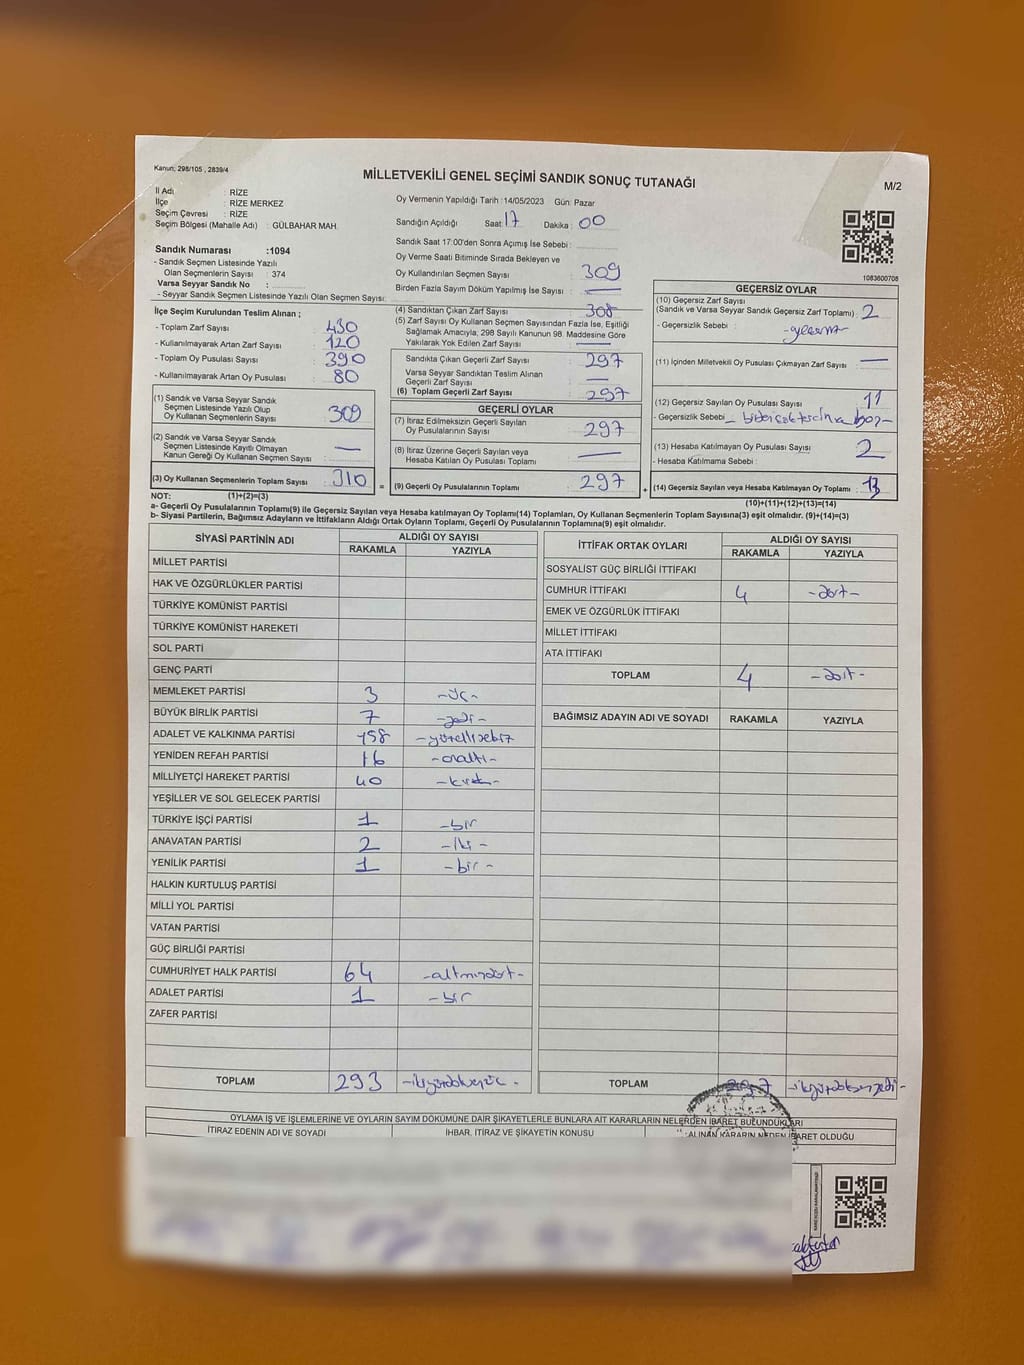 Kanun: 298/105 , 2839/4
MİLLETVEKİLİ GENEL SEÇİMİ SANDIK SONUÇ TUTANAĞI
M/2
İl Adı : RİZE
İlçe : RİZE MERKEZ
Seçim Çevresi : RİZE
Seçim Bölgesi (Mahalle Adı) : GÜLBAHAR MAH.
Oy Vermenin Yapıldığı Tarih : 14/05/2023 Gün: Pazar
Sandığın Açıldığı Saat: 17 Dakika : 00
Sandık Saat 17:00'den Sonra Açımış İse Sebebi :
Oy Verme Saati Bitiminde Sırada Bekleyen ve
Oy Kullandırılan Seçmen Sayısı : 309
Birden Fazla Sayım Döküm Yapılmış İse Sayısı : —
1083600706
Sandık Numarası :1094
- Sandık Seçmen Listesinde Yazılı
Olan Seçmenlerin Sayısı : 374
Varsa Seyyar Sandık No :
- Seyyar Sandık Seçmen Listesinde Yazılı Olan Seçmen Sayısı:
İlçe Seçim Kurulundan Teslim Alınan ;
- Toplam Zarf Sayısı : 430
- Kullanılmayarak Artan Zarf Sayısı : 120
- Toplam Oy Pusulası Sayısı : 390
- Kullanılmayarak Artan Oy Pusulası : 80
(1) Sandık ve Varsa Seyyar Sandık
Seçmen Listesinde Yazılı Olup
Oy Kullanan Seçmenlerin Sayısı : 309
(2) Sandık ve Varsa Seyyar Sandık
Seçmen Listesinde Kayıtlı Olmayan
Kanun Gereği Oy Kullanan Seçmen Sayısı : —
(3) Oy Kullanan Seçmenlerin Toplam Sayısı : 310
(4) Sandıktan Çıkan Zarf Sayısı : 308
(5) Zarf Sayısı Oy Kullanan Seçmen Sayısından Fazla İse, Eşitliği
Sağlamak Amacıyla, 298 Sayılı Kanunun 98. Maddesine Göre
Yakılarak Yok Edilen Zarf Sayısı : —
Sandıkta Çıkan Geçerli Zarf Sayısı : 297
Varsa Seyyar Sandıktan Teslim Alınan
Geçerli Zarf Sayısı : —
(6) Toplam Geçerli Zarf Sayısı : 297
GEÇERLİ OYLAR
(7) İtiraz Edilmeksizin Geçerli Sayılan
Oy Pusulalarının Sayısı : 297
(8) İtiraz Üzerine Geçerli Sayılan veya
Hesaba Katılan Oy Pusulası Toplamı : —
= (9) Geçerli Oy Pusulalarının Toplamı : 297
GEÇERSİZ OYLAR
(10) Geçersiz Zarf Sayısı
(Sandık ve Varsa Seyyar Sandık Geçersiz Zarf Toplamı) : 2
- Geçersizlik Sebebi :
(11) İçinden Milletvekili Oy Pusulası Çıkmayan Zarf Sayısı : —
(12) Geçersiz Sayılan Oy Pusulası Sayısı : 11
- Geçersizlik Sebebi :
(13) Hesaba Katılmayan Oy Pusulası Sayısı : 2
- Hesaba Katılmama Sebebi :
+ (14) Geçersiz Sayılan veya Hesaba Katılmayan Oy Toplamı : 13
NOT: (1)+(2)=(3)
(10)+(11)+(12)+(13)=(14)
a- Geçerli Oy Pusulalarının Toplamı(9) ile Geçersiz Sayılan veya Hesaba katılmayan Oy Toplamı(14) Toplamları, Oy Kullanan Seçmenlerin Toplam Sayısına(3) eşit olmalıdır. (9)+(14)=(3)
b- Siyasi Partilerin, Bağımsız Adayların ve İttifakların Aldığı Ortak Oyların Toplamı, Geçerli Oy Pusulalarının Toplamına(9) eşit olmalıdır.
SİYASİ PARTİNİN ADI ALDIĞI OY SAYISI
RAKAMLA YAZIYLA
MİLLET PARTİSİ
HAK VE ÖZGÜRLÜKLER PARTİSİ
TÜRKİYE KOMÜNİST PARTİSİ
TÜRKİYE KOMÜNİST HAREKETİ
SOL PARTİ
GENÇ PARTİ
MEMLEKET PARTİSİ 3 -üç-
BÜYÜK BİRLİK PARTİSİ 7 -yedi-
ADALET VE KALKINMA PARTİSİ 158 -yüzellisekiz
YENİDEN REFAH PARTİSİ 16 -onaltı-
MİLLİYETÇİ HAREKET PARTİSİ 40 -kırk-
YEŞİLLER VE SOL GELECEK PARTİSİ
TÜRKİYE İŞÇİ PARTİSİ 1 -bir
ANAVATAN PARTİSİ 2 -iki-
YENİLİK PARTİSİ 1 -bir-
HALKIN KURTULUŞ PARTİSİ
MİLLİ YOL PARTİSİ
VATAN PARTİSİ
GÜÇ BİRLİĞİ PARTİSİ
CUMHURİYET HALK PARTİSİ 64 -altmışdört-
ADALET PARTİSİ 1 -bir
ZAFER PARTİSİ
TOPLAM 293 -ikiyüzdoksanüç-
İTTİFAK ORTAK OYLARI ALDIĞI OY SAYISI
RAKAMLA YAZIYLA
SOSYALİST GÜÇ BİRLİĞİ İTTİFAKI
CUMHUR İTTİFAKI 4 -dört-
EMEK VE ÖZGÜRLÜK İTTİFAKI
MİLLET İTTİFAKI
ATA İTTİFAKI
TOPLAM 4 -dört-
BAĞIMSIZ ADAYIN ADI VE SOYADI RAKAMLA YAZIYLA
TOPLAM 297 -ikiyüzdoksanyedi-
OYLAMA İŞ VE İŞLEMLERİNE VE OYLARIN SAYIM DÖKÜMÜNE DAİR ŞİKAYETLERLE BUNLARA AİT KARARLARIN NELERDEN İBARET BULUNDUKLARI
İTİRAZ EDENİN ADI VE SOYADI İHBAR, İTİRAZ VE ŞİKAYETİN KONUSU ALINAN KARARIN NEDEN İBARET OLDUĞU